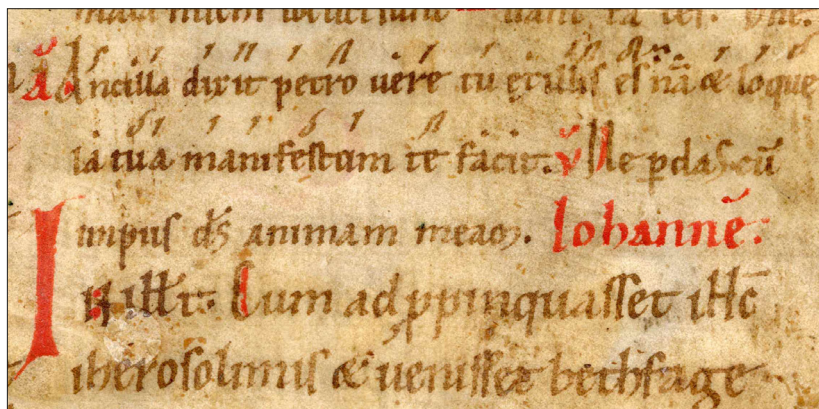 Ancilla dixit petro uere tu ex illis es nā & loque
la tua manifestum te facit. v̆ Ne pdas cū
impiis ds̄ animam meam. Iohannē.
IN ill̄ t̄. Cum adppinquasset ih̄c
iherosolimis & uenisset bethfage